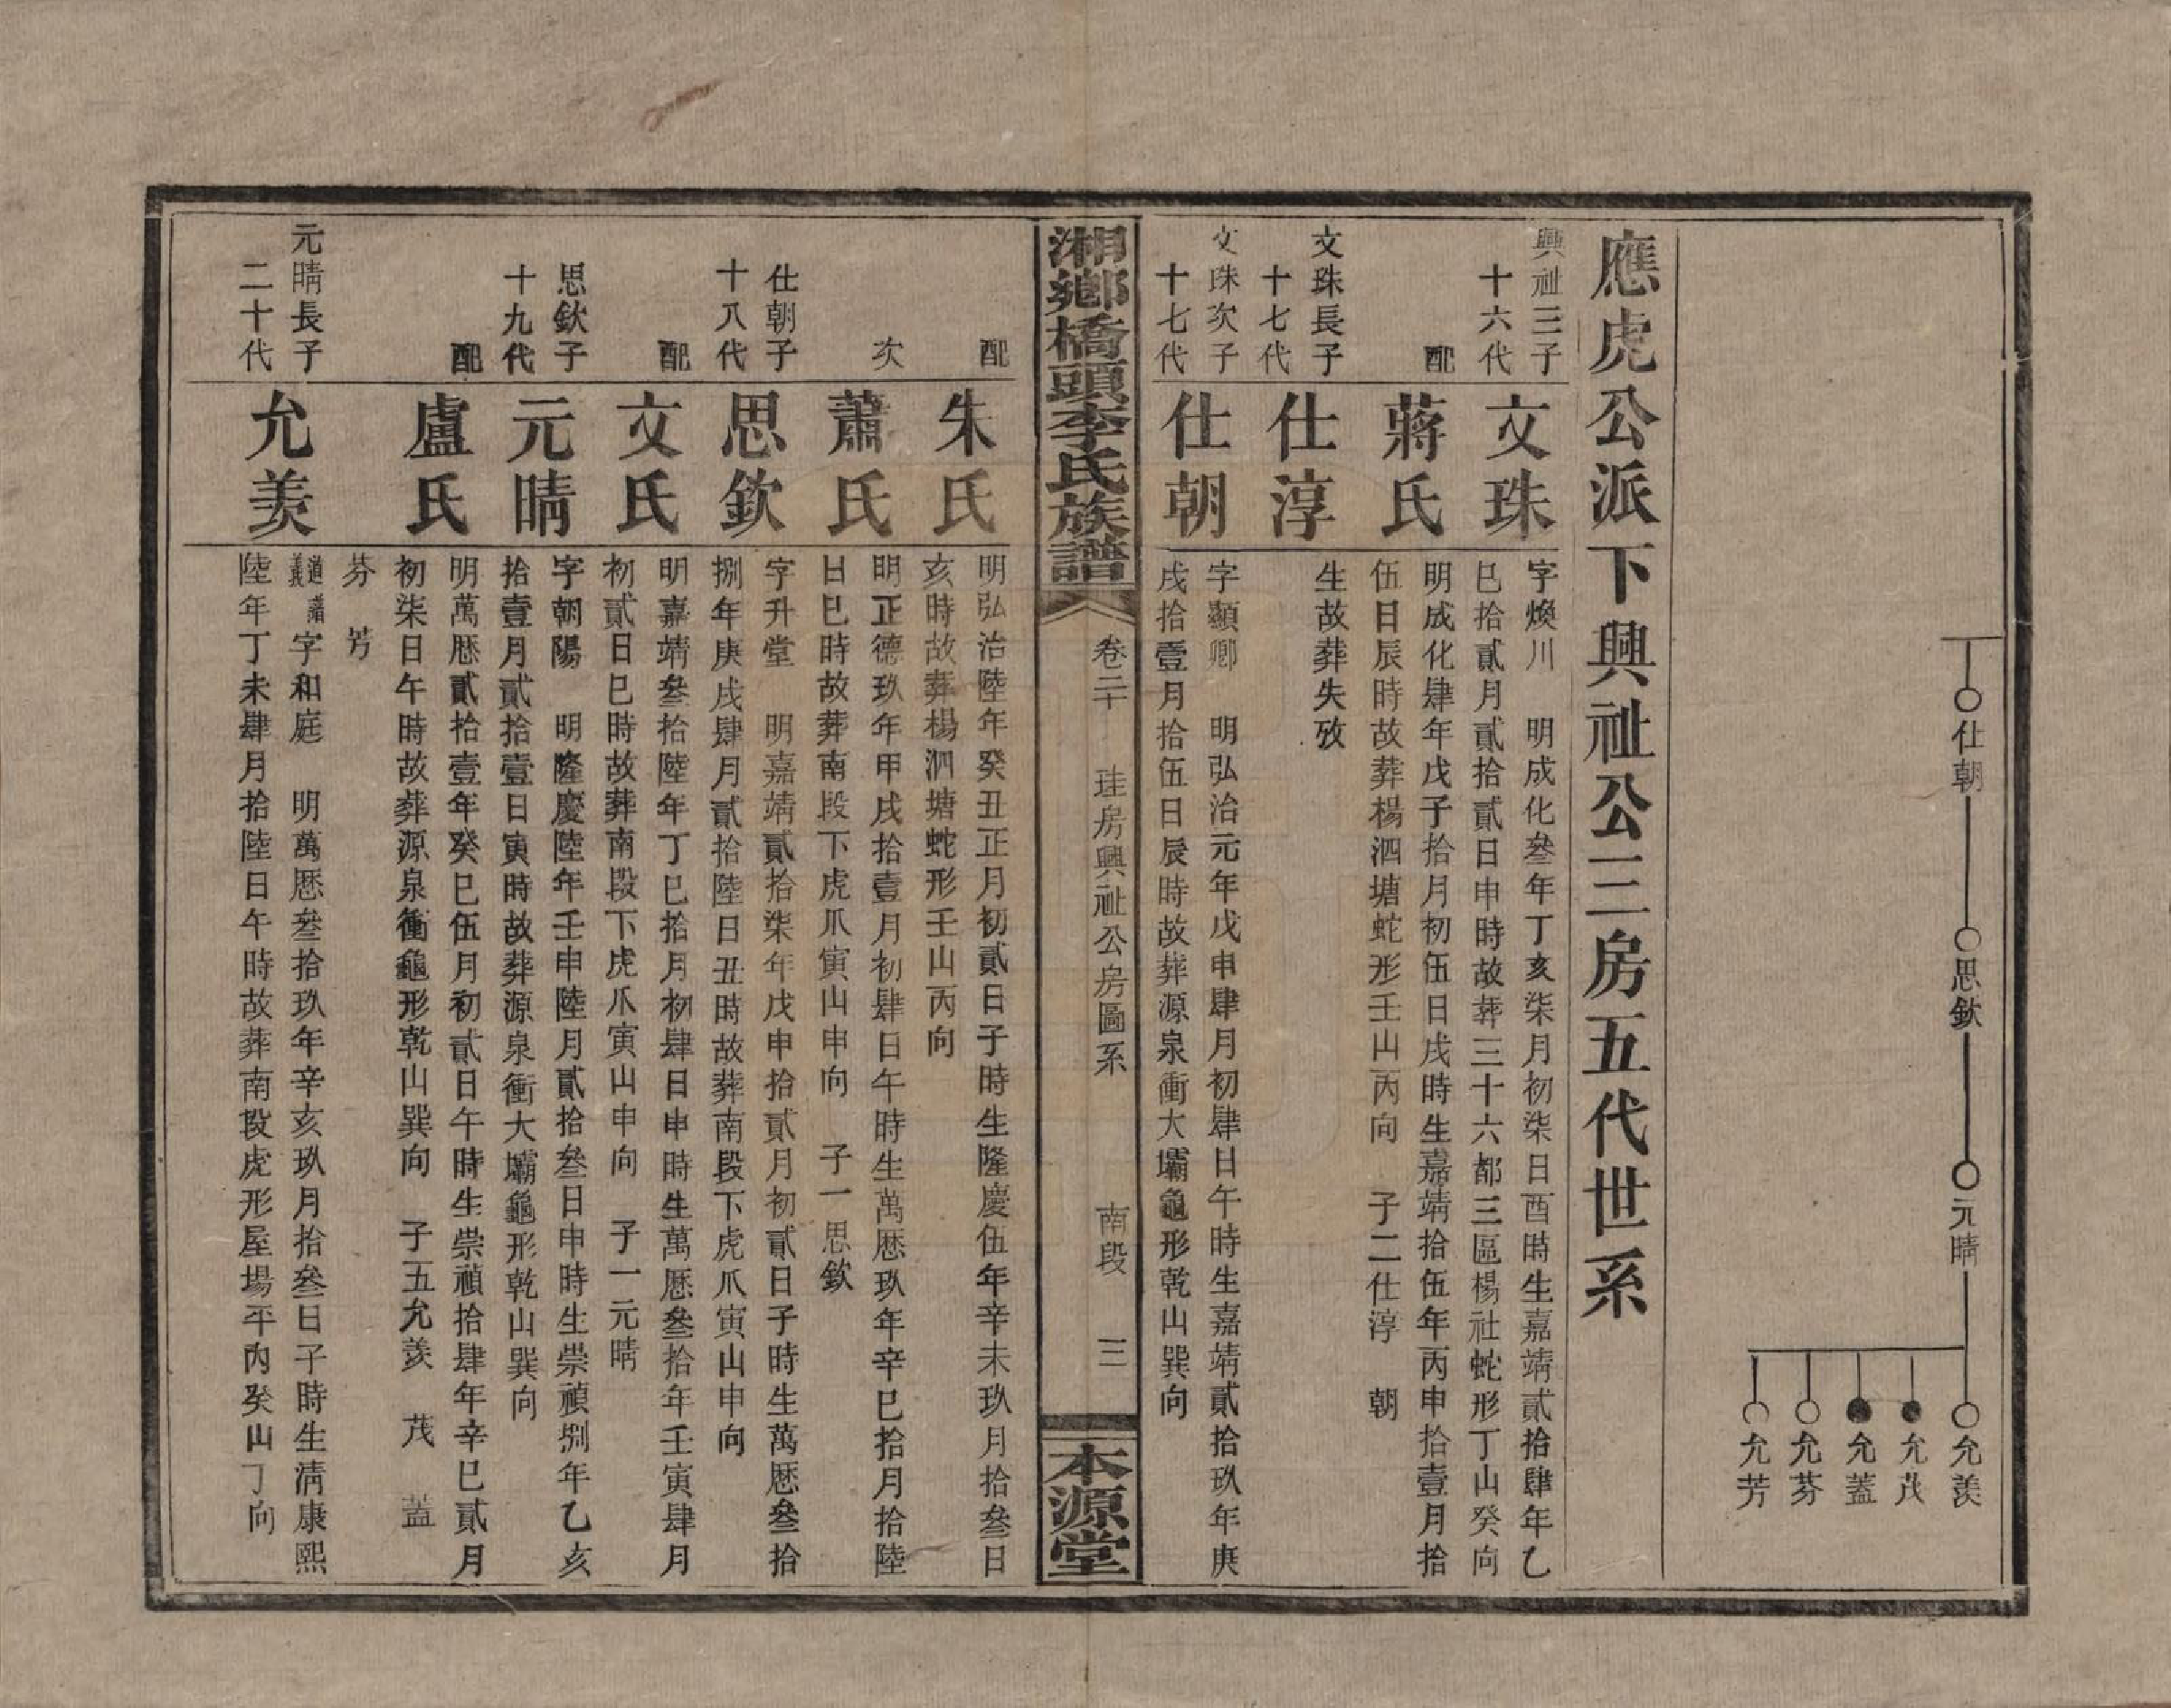 仕朝
思欽
元晴
允羨
允茂
允蓋
允芬
允芳
應虎公派下興祉公三房五代世系
興祉三子
十六代
文珠
字煥川　明成化叄年丁亥柒月初柒日酉時生嘉靖貳拾肆年乙
巳拾貳月貳拾貳日申時故葬三十六都三區楊社蛇形丁山癸向
配
蔣氏
明成化肆年戊子拾月初伍日戌時生嘉靖拾伍年丙申拾壹月拾
伍日辰時故葬楊泗塘蛇形壬山丙向　子二仕淳　朝
文珠長子
十七代
仕淳
生故葬失攷
文珠次子
十七代
仕朝
字顯卿　明弘治元年戊申肆月初肆日午時生嘉靖貳拾玖年庚
戌拾壹月拾伍日辰時故葬源泉衝大壩龜形乾山巽向
湘鄉橋頭李氏族譜
卷二十　珪房興祉公房圖系　南段　三
本源堂
配
朱氏
明弘治陸年癸丑正月初貳日子時生隆慶伍年辛未玖月拾叄日
亥時故葬楊泗塘蛇形壬山丙向
次
蕭氏
明正德玖年甲戌拾壹月初肆日午時生萬厯玖年辛巳拾月拾陸
日巳時故葬南段下虎爪寅山申向　子一思欽
仕朝子
十八代
思欽
字升堂　明嘉靖貳拾柒年戊申拾貳月初貳日子時生萬厯叄拾
捌年庚戌肆月貳拾陸日丑時故葬南段下虎爪寅山申向
配
文氏
明嘉靖叄拾陸年丁巳拾月初肆日申時生萬厯叄拾年壬寅肆月
初貳日巳時故葬南段下虎爪寅山申向　子一元晴
思欽子
十九代
元晴
字朝陽　明隆慶陸年壬申陸月貳拾叄日申時生崇禎捌年乙亥
拾壹月貳拾壹日寅時故葬源泉衝大壩龜形乾山巽向
配
盧氏
明萬厯貳拾壹年癸巳伍月初貳日午時生崇禎拾肆年辛巳貳月
初柒日午時故葬源泉衝龜形乾山巽向　子五允羨　茂　蓋
芬　芳
元晴長子
二十代
允羨
道諱義字和庭　明萬厯叄拾玖年辛亥玖月拾叄日子時生淸康熙
陸年丁未肆月拾陸日午時故葬南段虎形屋場平內癸山丁向